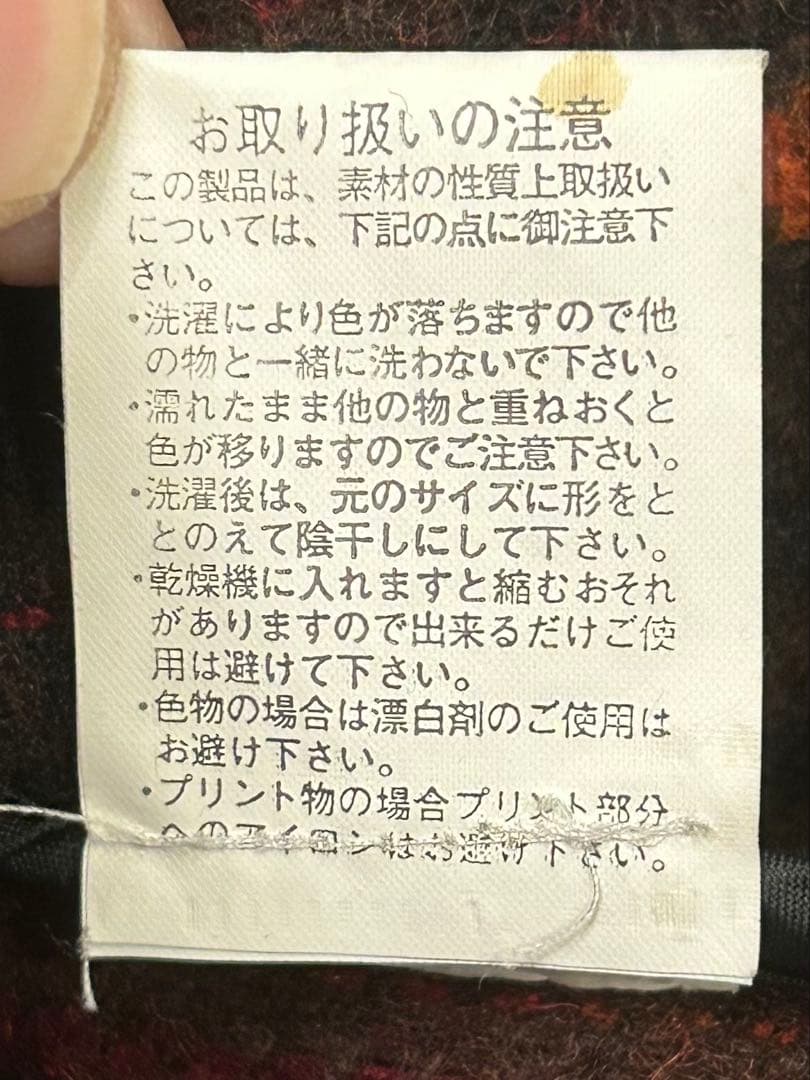 お取り扱いの注意
この製品は、素材の性質上取扱い
については、下記の点に御注意下
さい。
・洗濯により色が落ちますので他
の物と一緒に洗わないで下さい。
・濡れたまま他の物と重ねおくと
色が移りますのでご注意下さい。
・洗濯後は、元のサイズに形をと
とのえて陰干しにして下さい。
・乾燥機に入れますと縮むおそれ
がありますので出来るだけご使
用は避けて下さい。
・色物の場合は漂白剤のご使用は
お避け下さい。
・プリント物の場合プリント部分
へのアイロンはお避け下さい。